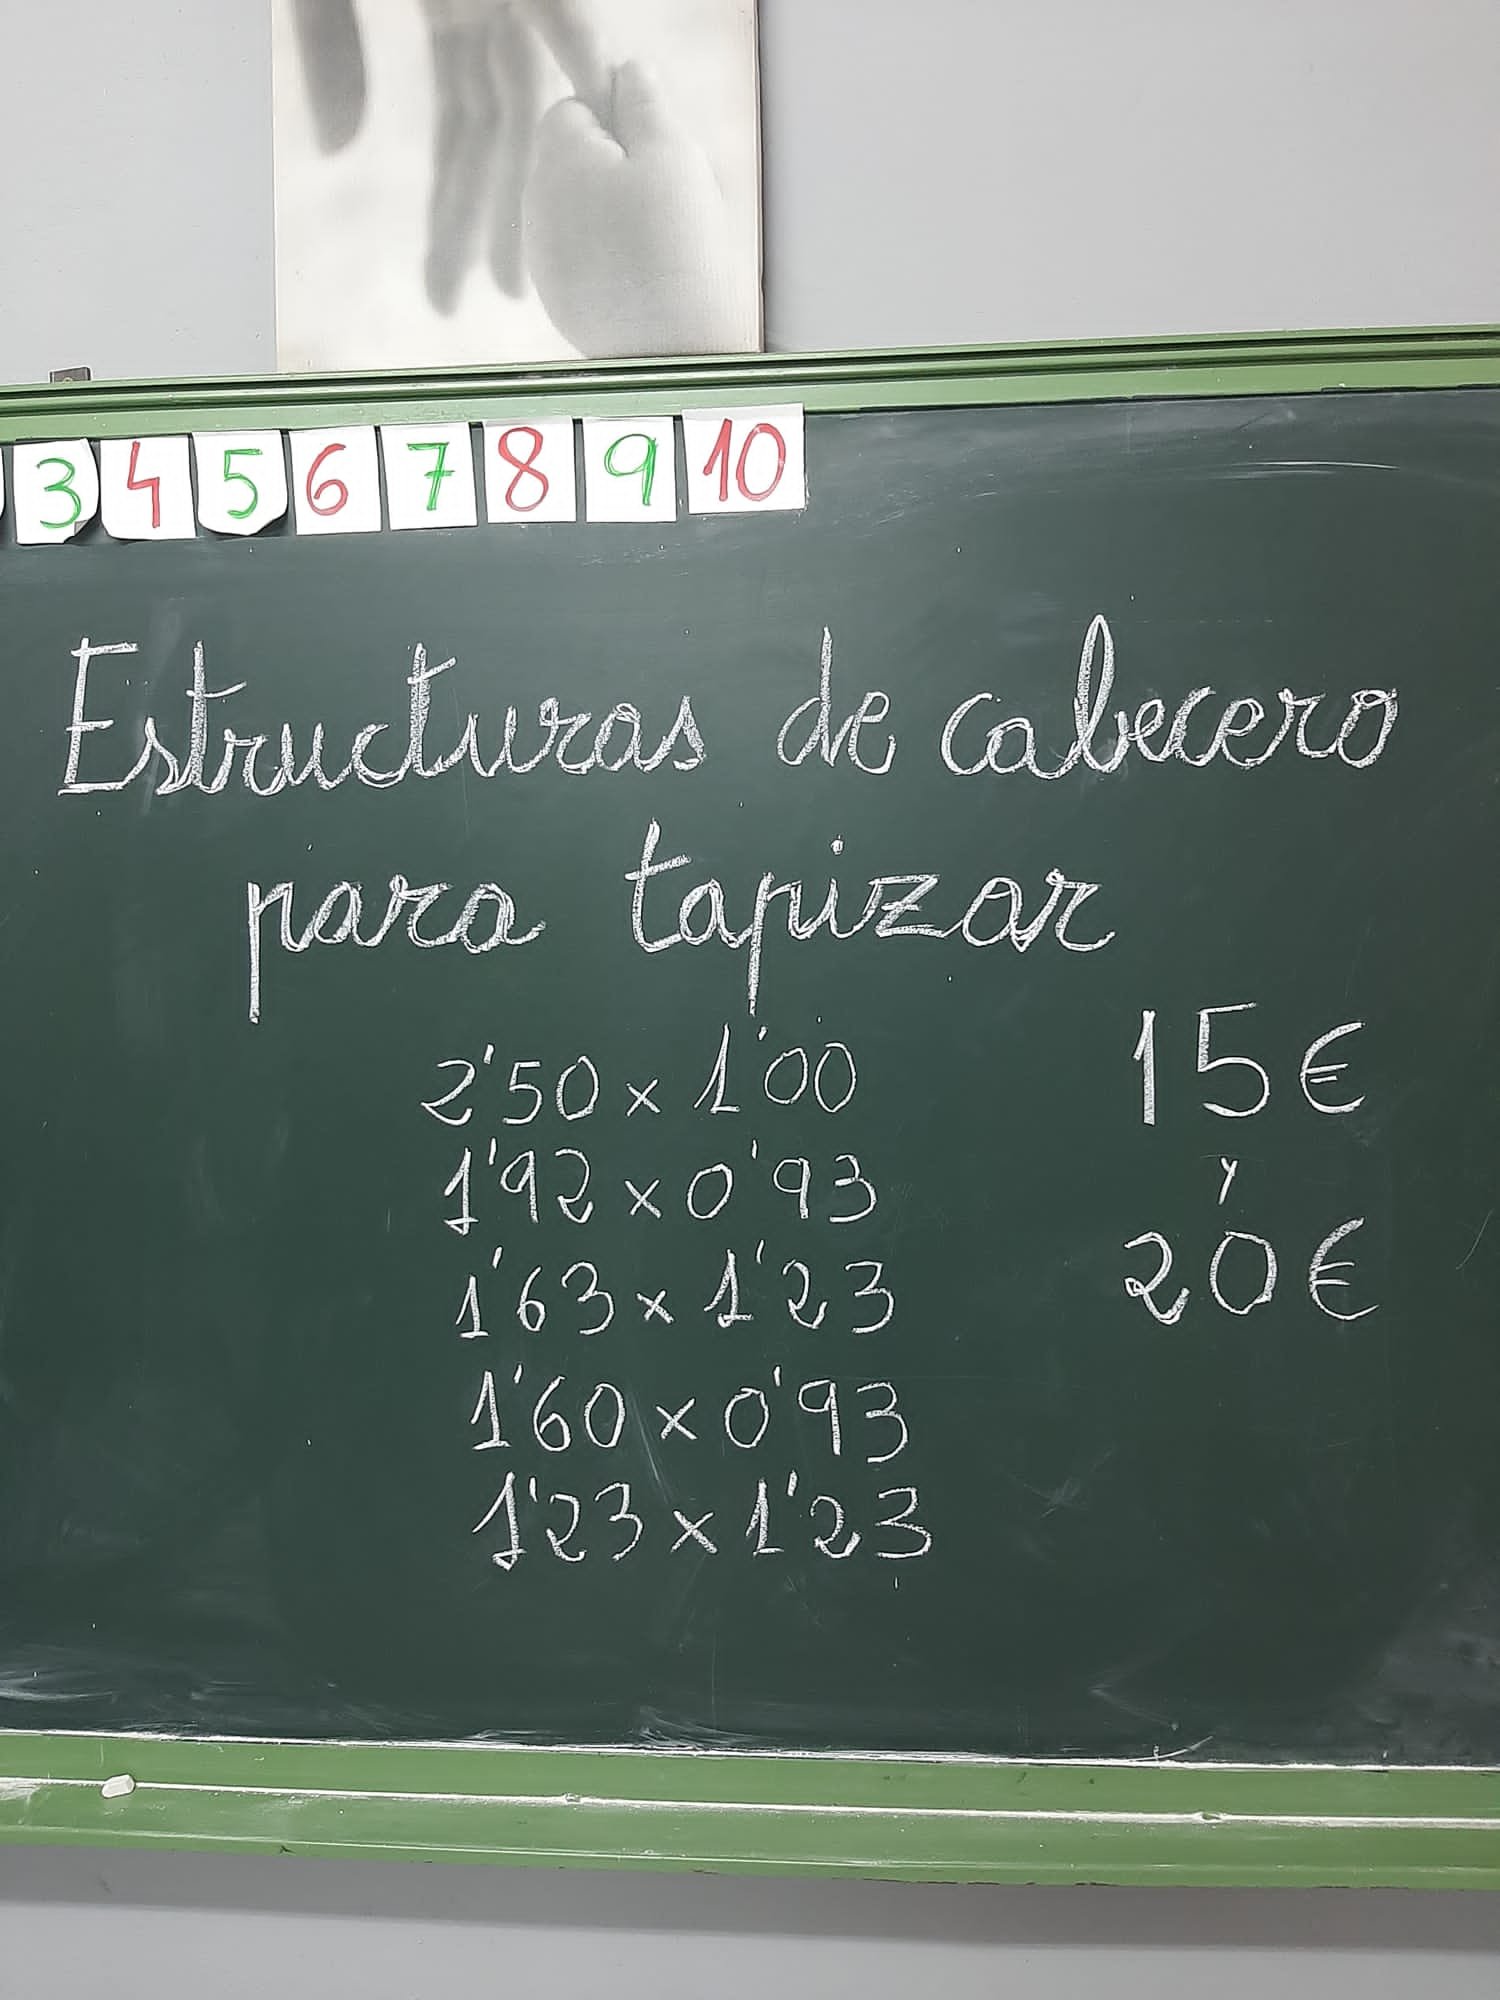 3 4 5 6 7 8 9 10
Estructuras de cabecero
para tapizar
2'50 x 1'00
1'92 x 0'93
1'63 x 1'23
1'60 x 0'93
1'23 x 1'23
15€
y
20€